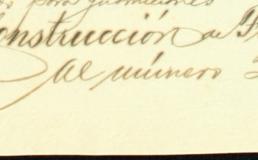 para guarniciones
onstrucción de F
al número